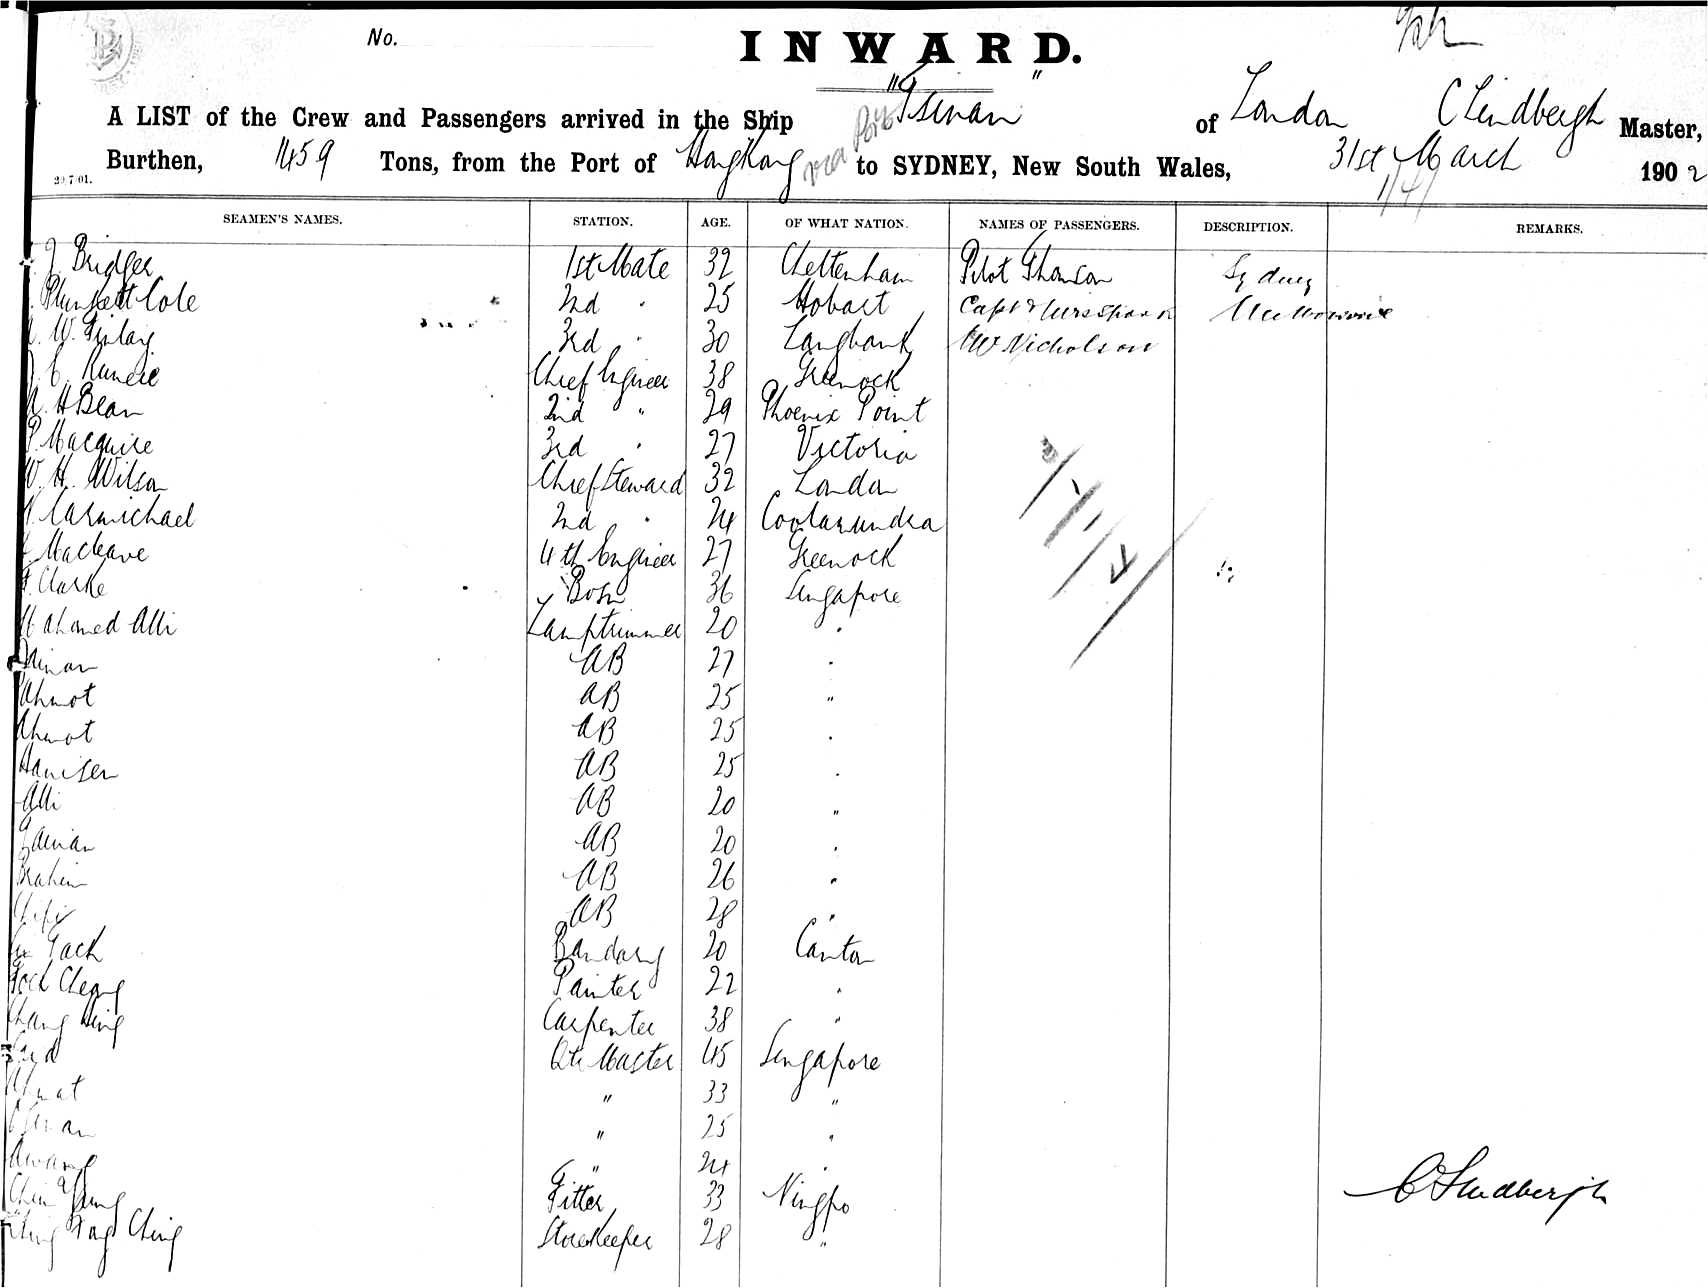 No.
INWARD.
A LIST of the Crew and Passengers arrived in the Ship "Tsinan" of London C Lindbergh Master,
Burthen, 1459 Tons, from the Port of HongKong via to SYDNEY, New South Wales, 31st March 1902
29.7.01. 1/4/
SEAMEN'S NAMES. STATION. AGE. OF WHAT NATION. NAMES OF PASSENGERS. DESCRIPTION. REMARKS.
J Bridger 1st Mate 32 Cheltenham Pilot Thomson Sydney
Plunkett Cole 2nd " 25 Hobart Capt
W. Finlay 3rd " 30 Langbank Nicholson
C. Runcie Chief Engineer 38 Greenock
H Bean 2nd " 29 Phoenix Point
P. Macquire 3rd " 27 Victoria
W. H. Wilson Chief Steward 32 London
Carmichael 2nd " 24 Cootamundra
Macleave 4th Engineer 27 Greenock
Clarke Bosn 36 Singapore
Mahomed Alli Lamptrimmer 20 "
AB 27 "
Ahmot AB 25 "
Ahmot AB 25 "
AB 25 "
Alli AB 20 "
AB 20 "
Brahim AB 26 "
AB 28 "
Tack 20 Canton
Cheong Painter 22 "
Chang Carpenter 38 "
Qtr Master 45 Singapore
" 33 "
" 25 "
Awang " 24 "
Fitter 33 Ningpo
Ching Storekeeper 28 "
C Lindbergh